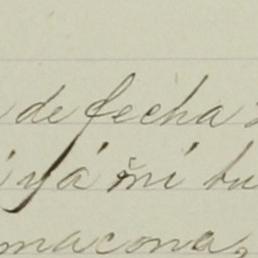 de fecha
y á mi bu
macona,